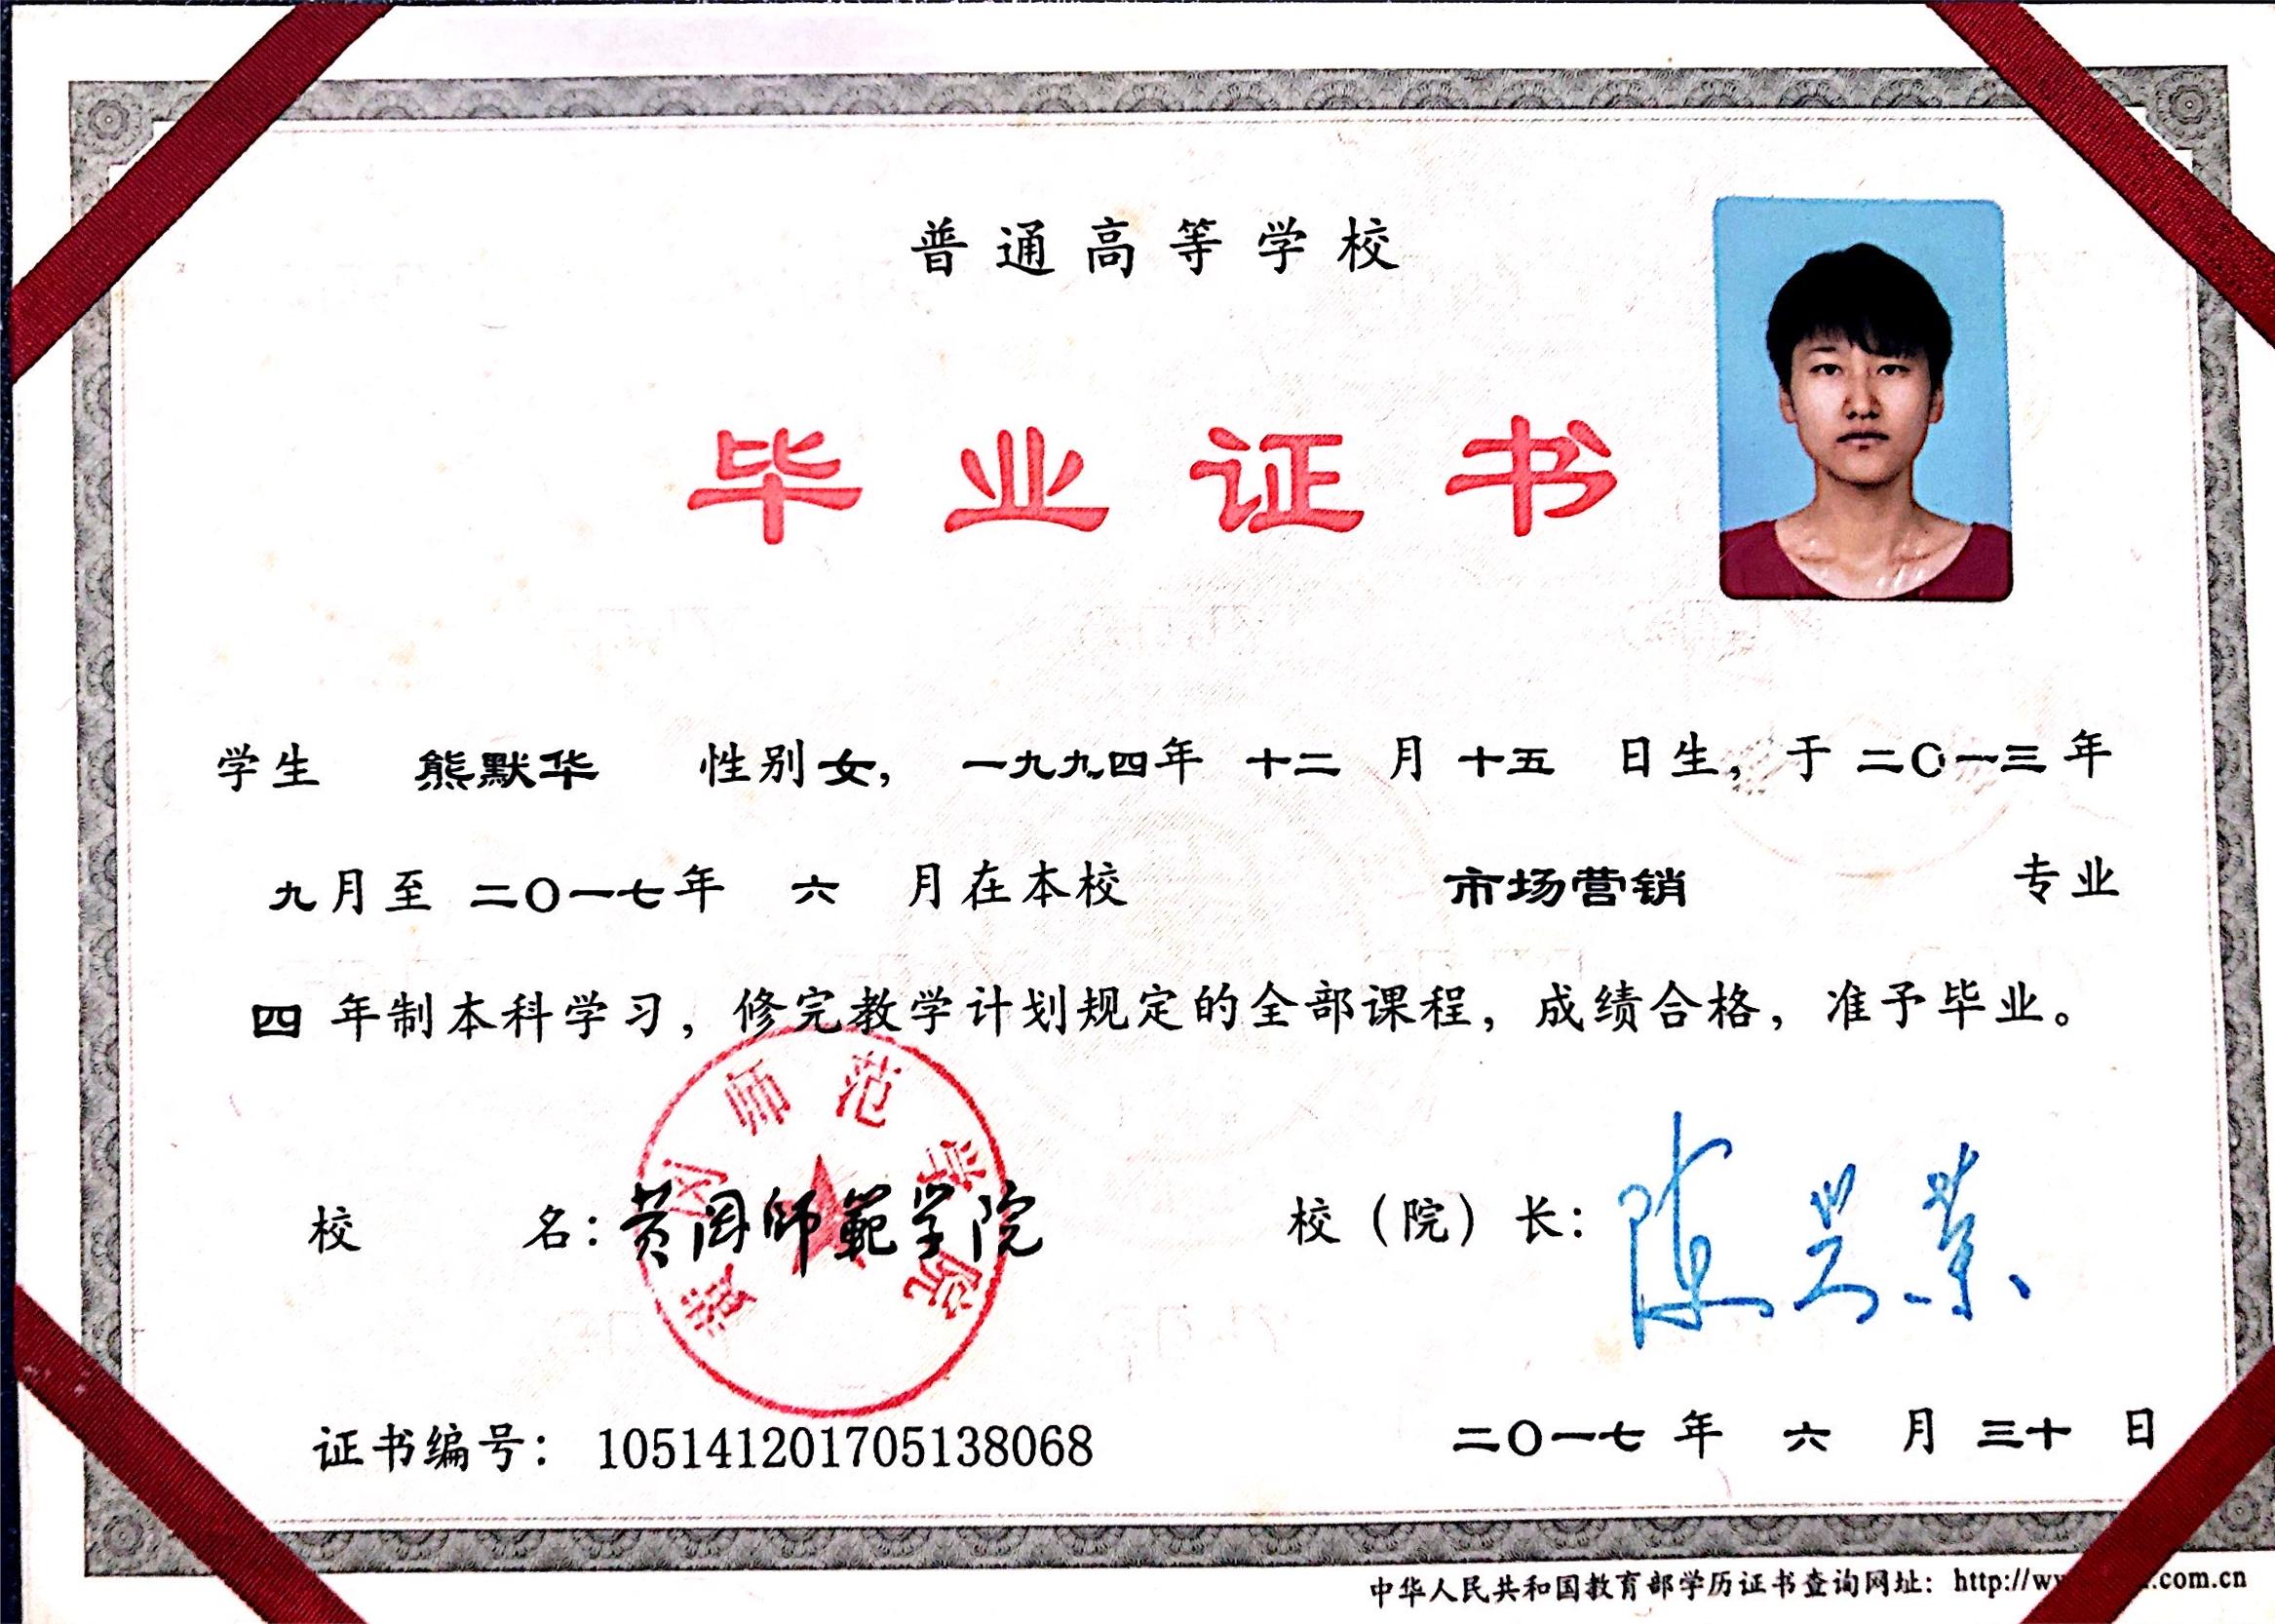 普通高等学校
毕业证书
学生 熊默华 性别女，一九九四年 十二 月 十五 日生，于 二〇一三 年
九月至 二〇一七年 六 月在本校 市场营销 专业
四 年制本科学习，修完教学计划规定的全部课程，成绩合格，准予毕业。
黄冈师范学院
校 名：黄冈師範学院 校（院）长：陈兴荣
证书编号：105141201705138068 二〇一七 年 六 月 三十 日
中华人民共和国教育部学历证书查询网址：http://w .com.cn